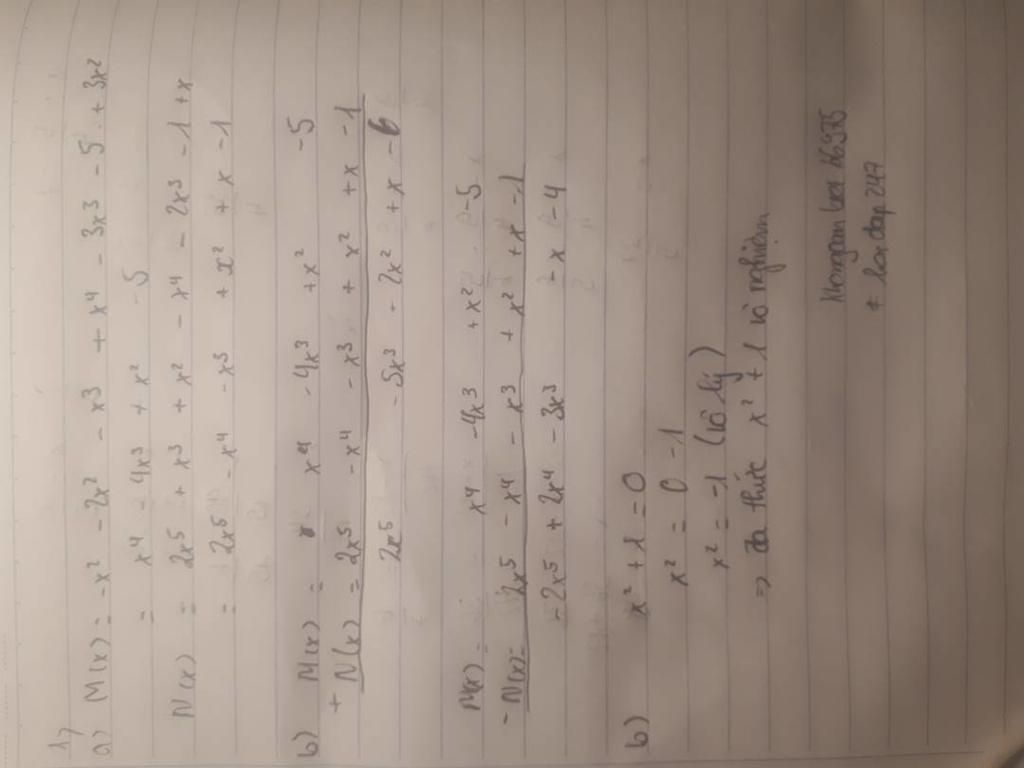 17
a) M(x) = -x² - 2x² - x³ + x⁴ - 3x³ - 5 + 3x²
= x⁴ - 4x³ + x² - 5
N(x) = 2x⁵ + x³ + x² - x⁴ - 2x³ - 1 + x
= 2x⁵ - x⁴ - x³ + x² + x - 1
b) M(x) = x⁴ - 4x³ + x² - 5
+ N(x) = 2x⁵ - x⁴ - x³ + x² + x - 1
2x⁵ - 5x³ + 2x² + x - 6
M(x) = x⁴ - 4x³ + x² - 5
- N(x) = 2x⁵ - x⁴ - x³ + x² + x - 1
- 2x⁵ + 2x⁴ - 3x³ - x - 4
b) x² + 1 = 0
x² = 0 - 1
x² = -1 (vô lý)
=> đa thức x² + 1 vô nghiệm
+ hoidap247